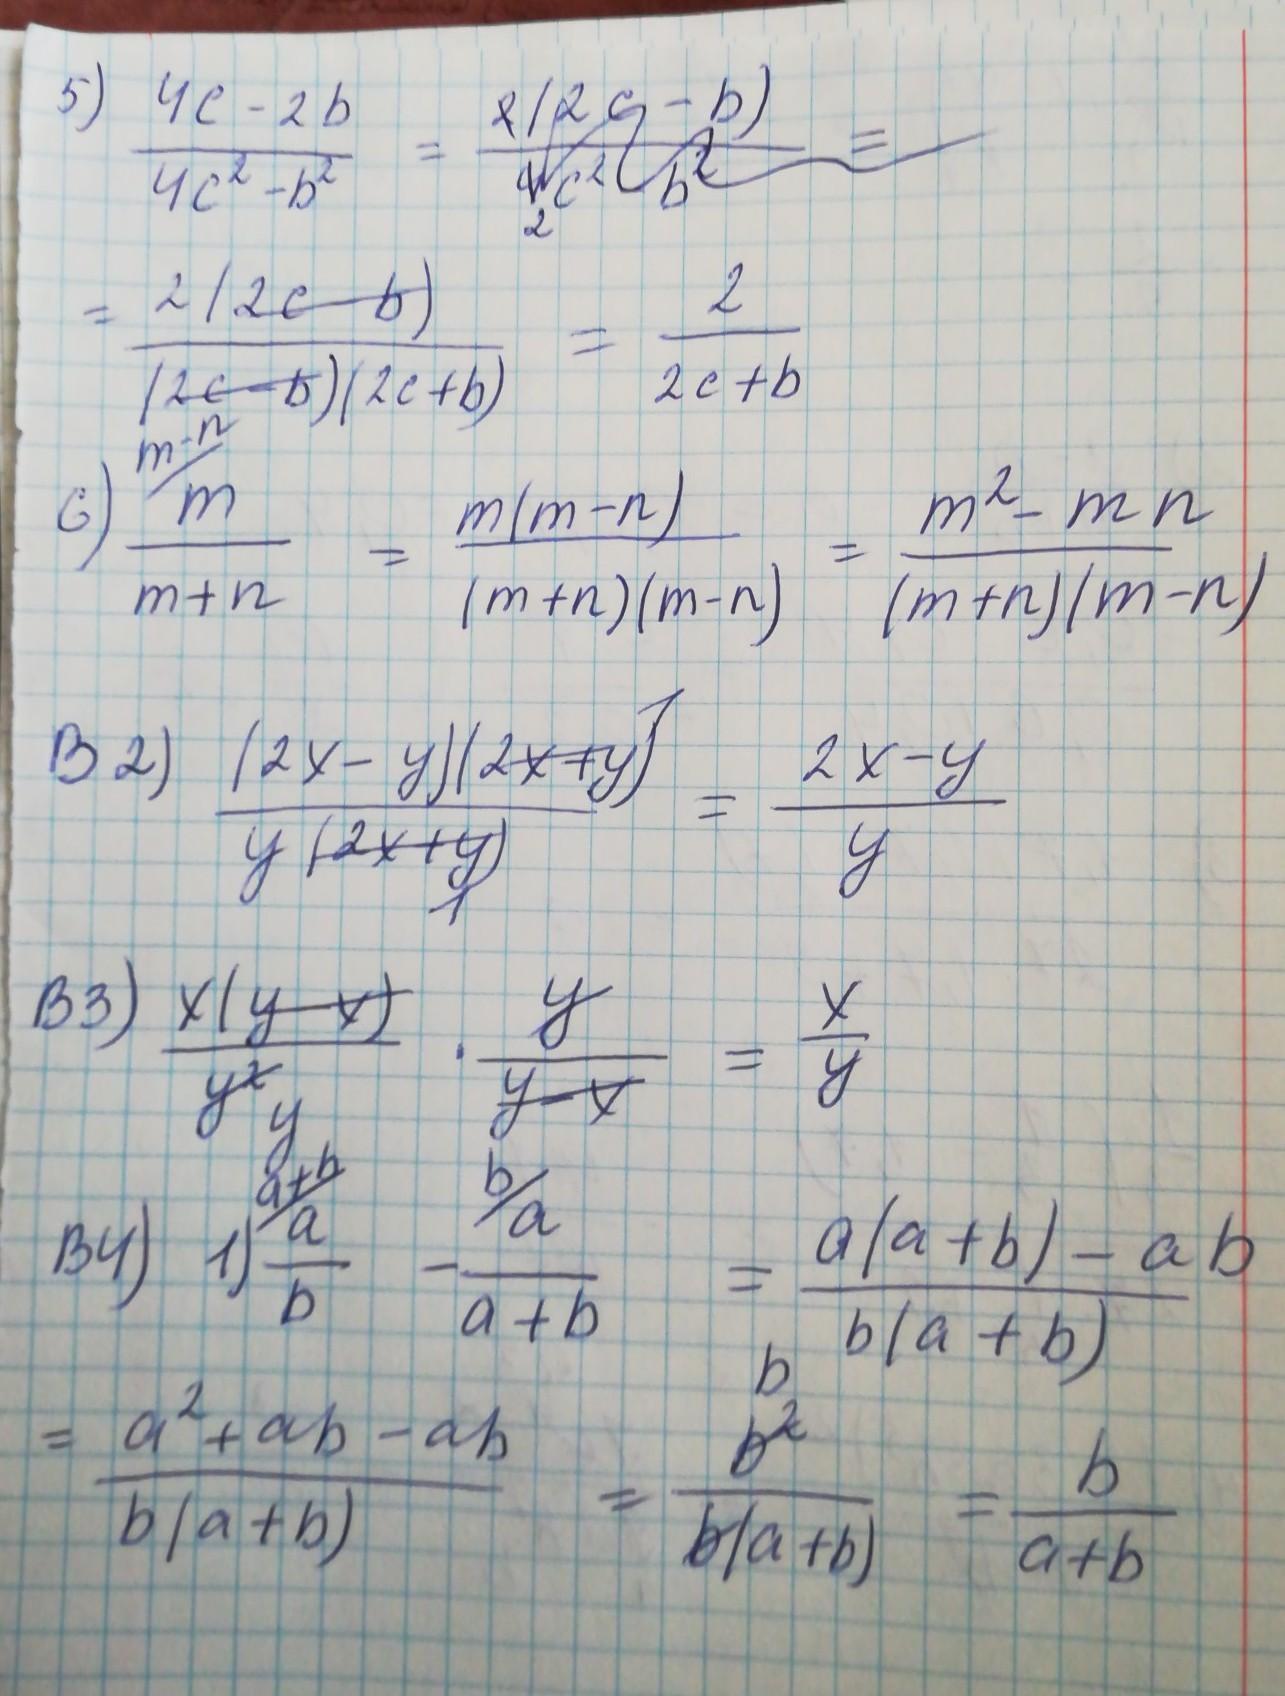 5) (4c - 2b)/(4c² - b²) = 2(2c - b)/(4c² b²) =
= 2(2c - b)/((2c - b)(2c + b)) = 2/(2c + b)
6) m-n/ m/(m + n) = m(m - n)/((m + n)(m - n)) = (m² - mn)/((m + n)(m - n))
B2) (2x - y)(2x + y) 1/(y(2x + y) 1) = (2x - y)/y
B3) x(y - x)/(y² y) · y/(y - x) = x/y
B4) 1) a+b/ a/b - b/ a/(a + b) = (a(a + b) - ab)/(b(a + b))
= (a² + ab - ab)/(b(a + b)) = b b²/(b(a + b)) = b/(a + b)